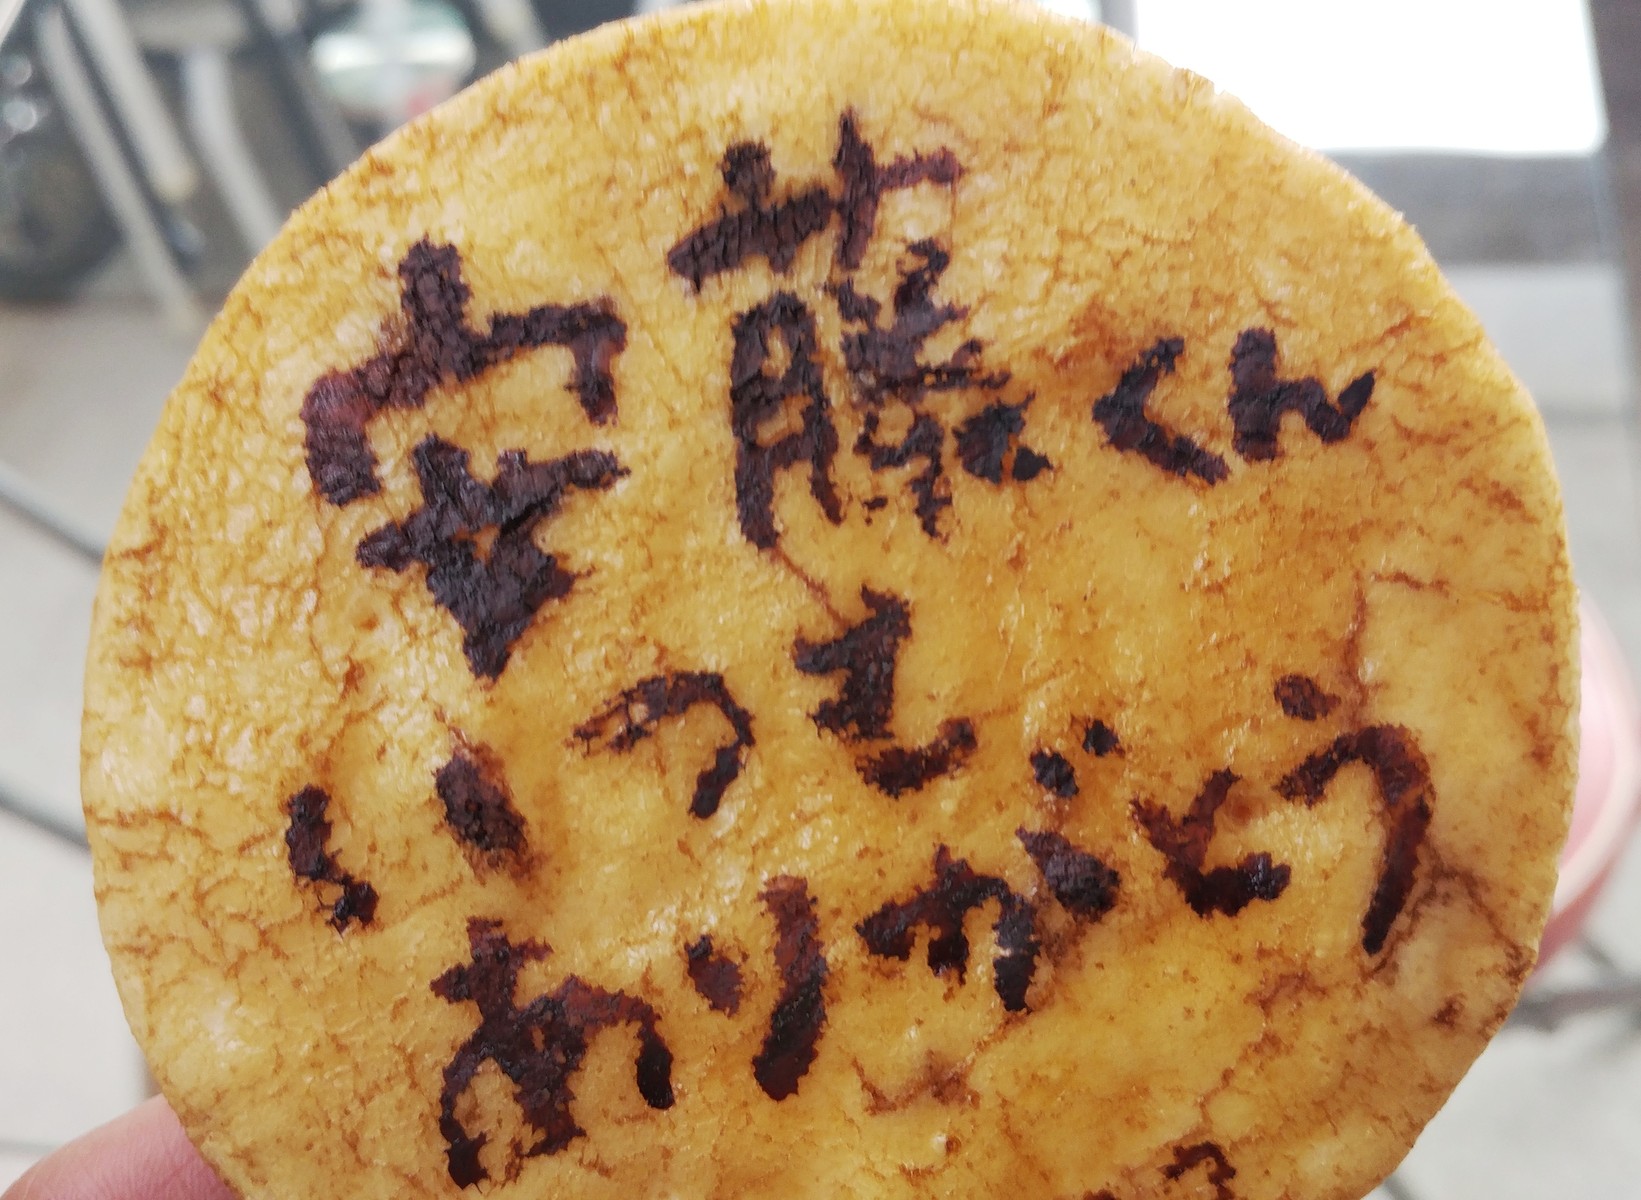 安藤くん
いつも
ありがとう